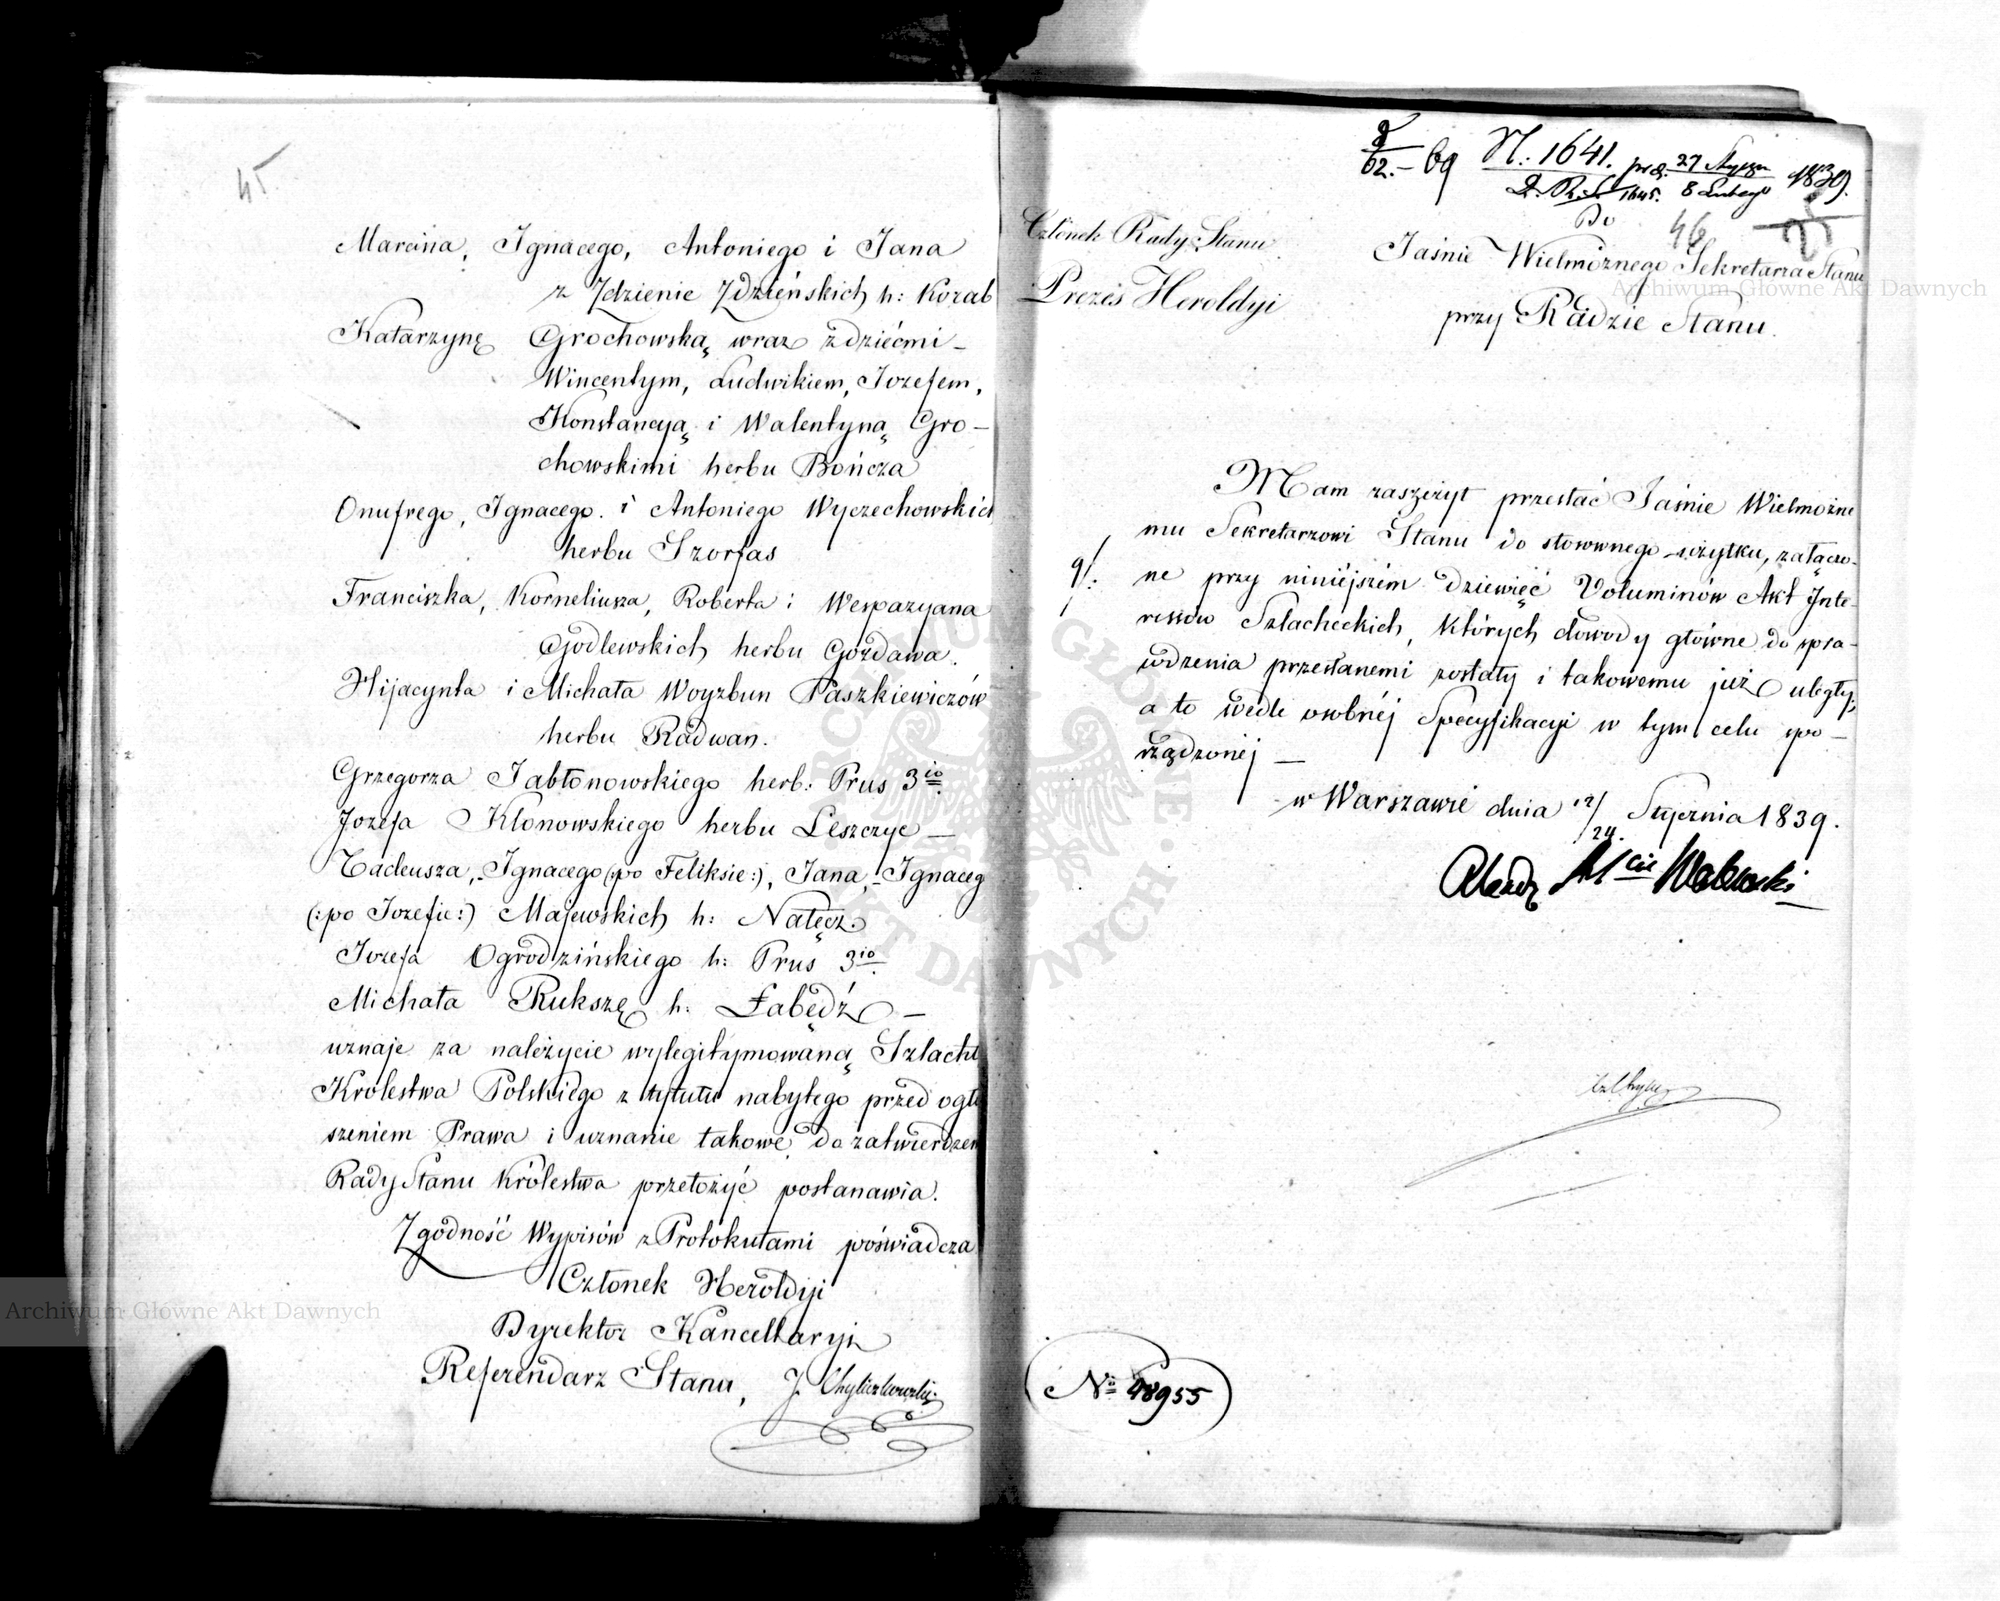 45.
Marcina, Ignacego, Antoniego i Jana
z Zdzienie Zdzieńskich h: Korab
Katarzynę Grochowską wraz z dziećmi –
Wincentym, Ludwikiem, Jozefem,
Konstancyą i Walentyną Gro–
chowskimi herbu Bończa
Onufrego, Ignacego i Antoniego Wyczechowskich
herbu Szorfas
Franciszka, Korneliusza, Roberta i Wespazyana
Godlewskich herbu Gozdawa.
Hijacynta i Michała Woyzbun Paszkiewiczów
herbu Radwan.
Grzegorza Jabłonowskiego herb: Prus 3io
Jozefa Klonowskiego herbu Leszczyc –
Tadeusza, Ignacego (:po Feliksie:), Jana, Ignaceg
(:po Jozefie:) Majewskich h: Nałęcz.
Jozefa Ogrodzińskiego h: Prus 3io.
Michała Rukszę h: Łabędź –
uznaje za należycie wylegitymowaną Szlacht
Krolestwa Polskiego z tytułu nabytego przed ogło
szeniem Prawa i uznanie takowe do zatwierdzen
Rady Stanu Królestwa przełożyć postanawia.
Zgodność Wypisów z Protokułami poświadcza
Członek Heroldyi
Dyrektor Kancellaryi
Referendarz Stanu, J. Chyliczkowski
62.– 69 N. 1641. prez. 27 Stycznia 1839.
1645. 8 Lutego
Do 46
Członek Rady Stanu
Prezes Heroldyi
Jaśnie Wielmożnego Sekretarza Stanu
przy Radzie Stanu.
Mam zaszczyt przesłać Jaśnie Wielmożne
mu Sekretarzowi Stanu do stosownego użytku, załączo-
9/. ne przy niniéjszém dziewięć Voluminów Akt Inte-
ressów Szlacheckich, których dowody główne do spra-
wdzenia przesłanemi zostały i takowemu już uległy,
a to wedle osobnéj Specyfikacyi w tym celu spo–
rządzonéj –
w Warszawie dnia 12/24. Stycznia 1839.
Alexandr Walewski
No 48955
Archiwum Główne Akt Dawnych
Archiwum Główne Akt Dawnych
ARCHIWUM GŁÓWNE AKT DAWNYCH